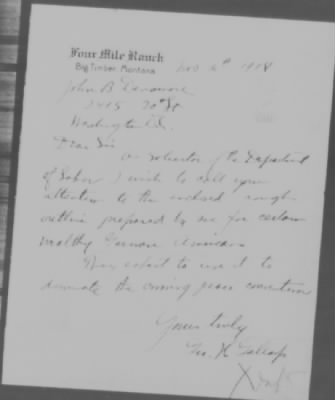 Four Mile Ranch
Big Timber, Montana
Nov 6th 1918
John B Densmore
2415 20th St
Washington D.C.
Dear Sir
As solicitor of the Department
of Labor I wish to call your
attention to the inclosed rough
outline prepared by me for certain
wealthy German Americans
They expect to use it to
dominate the coming peace convention
Yours truly
Geo. K